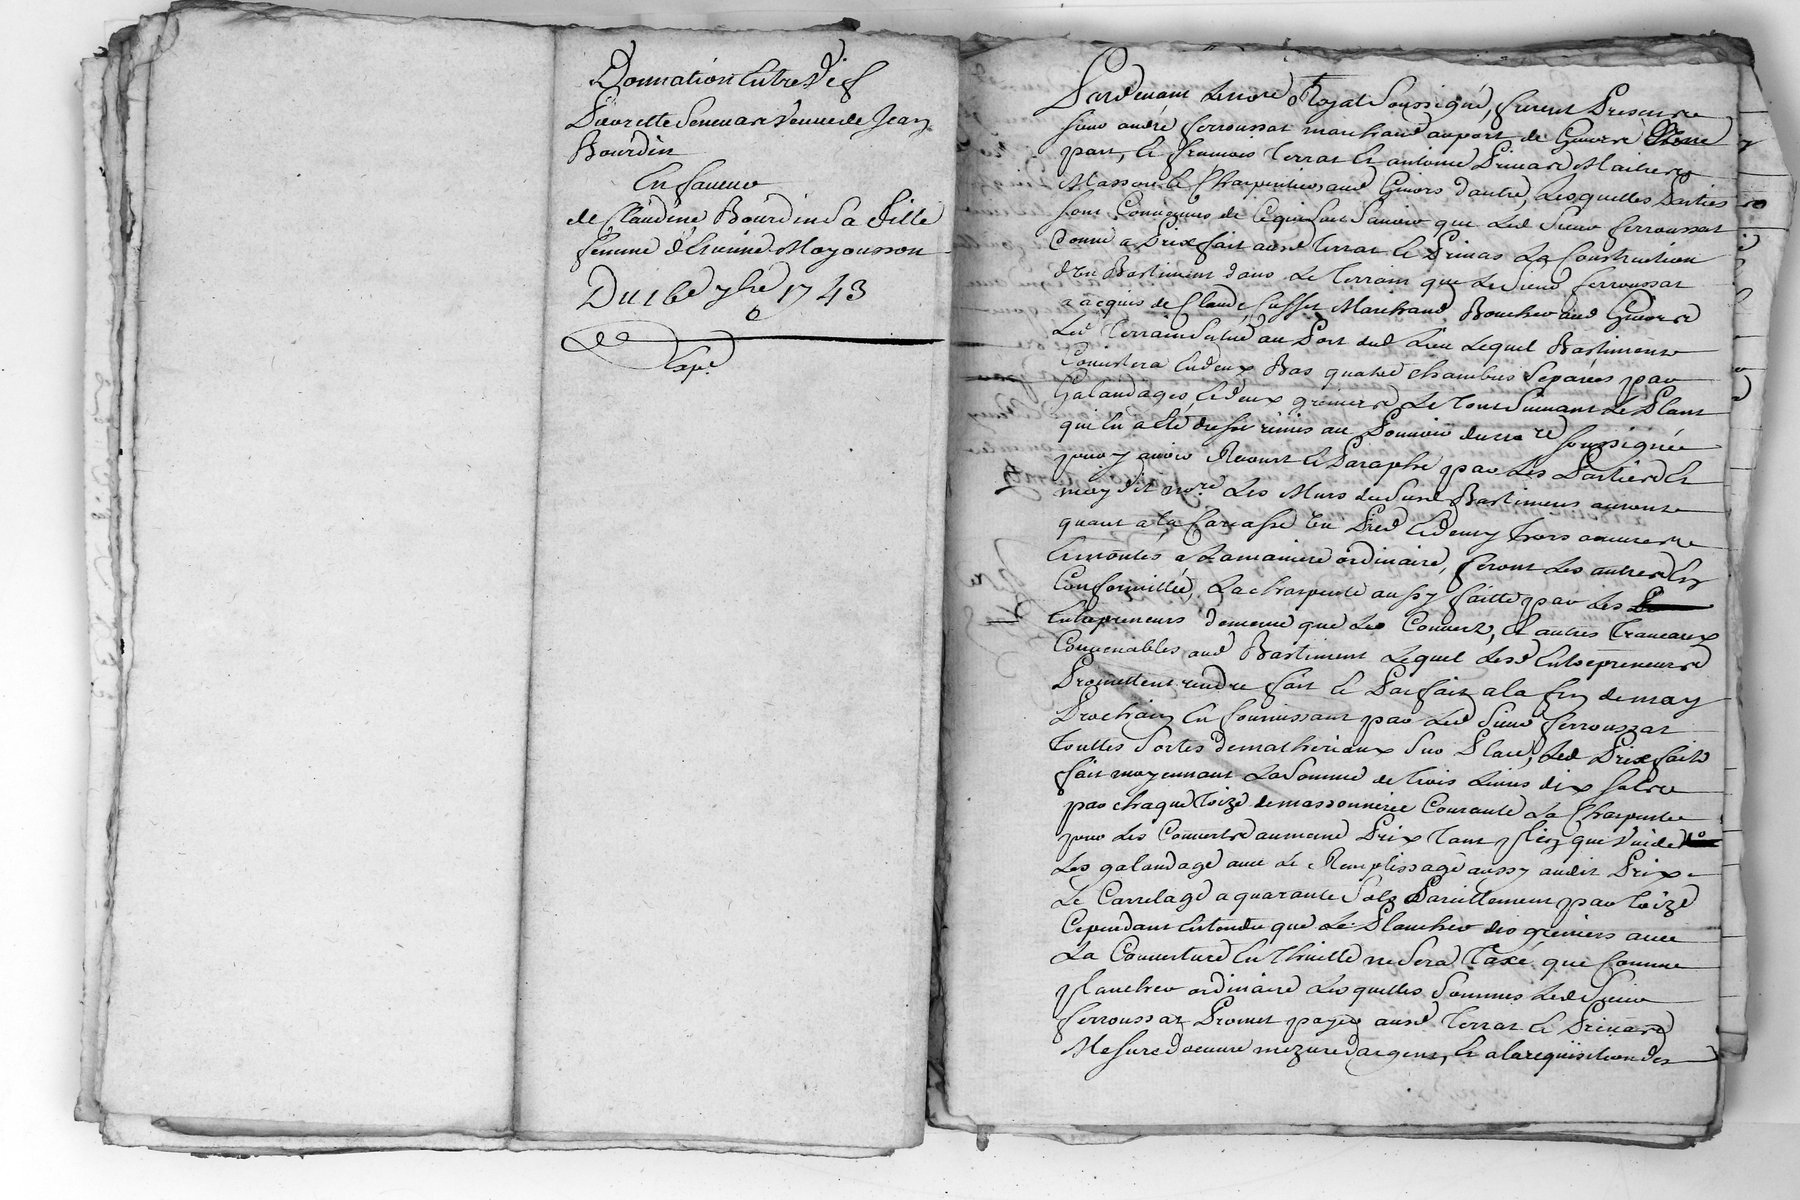 Donnation Entre Vif
Pierrette Senevas veuve de Jean
Bourdin
En faveur
de Claudine Bourdin Sa fille
femme d'Etienne Moyousson
Du 16e 7bre 1743
Exp.é
Pardevant Le no.re Royal Soussigné, furent Presents
sieur andré ferroussat marchand au port de Givors d'une
part, Et francois Terrat Et antoine Primas Maitres
Massons Et Charpentiers aud Givors d'autre, Lesquelles Parties
Sont Convenues de Ce qui Suit Savoir que Led Sieur ferroussat
Donne a Prixfait ausd Terrat Et Primas La Construction
d'un Bastiment dans Le Terrain que Led sieur ferroussat
a acquis de Claude Marchand Boucher aud Givors
Led Terrain Situé au Port dud Lieu Lequel Bastiment
Consistera En deux Bas quatre chambres Separées par
Galandages, Et deux greniers Le Tout Suivant Le Plant
qui En a eté dressé remis au Pouvoir du no.re soussignée
pour y avoir Recourt Et Paraphé par Les Parties Et
moy dit no.re Les Murs du Susd Bastiment auront
quant a la Carcasse Un Pied Et demy hors
Et montés a La maniere ordinaire, seront Les autres En
Conformitté, La charpente aussy faitte par Les
Entrepreneurs de meme que Les Couverts, Et autres Traveaux
Convenables aud Bastiment Lequel Lesd Entrepreneurs
Promettent rendre fait Et Parfait a la fin de may
Prochain En fournissant par Led Sieur ferroussat
Touttes Sortes de matheriaux Sur Place, Led Prixfait
fait moyennant La Somme de Trois Livres dix Sols
par chaque Toize de massonnerie Courante La Charpente
pour Les Couverts au meme Prix Tant plein que vuide
Les galandage avec Le Remplissage aussy audit Prix
Le Carrelage a quarante Sols Pareillement par Toize
Cependant Entendu que Le Plancher des greniers avec
La Couverture En Thuille ne Sera Taxé que Comme
plancher ordinaire Lesquelles Sommes Led Sieur
ferroussat Promet payer ausd Terrat Et Primas
Mesure d'oeuvre mezure d'argent, Et a la requisition des